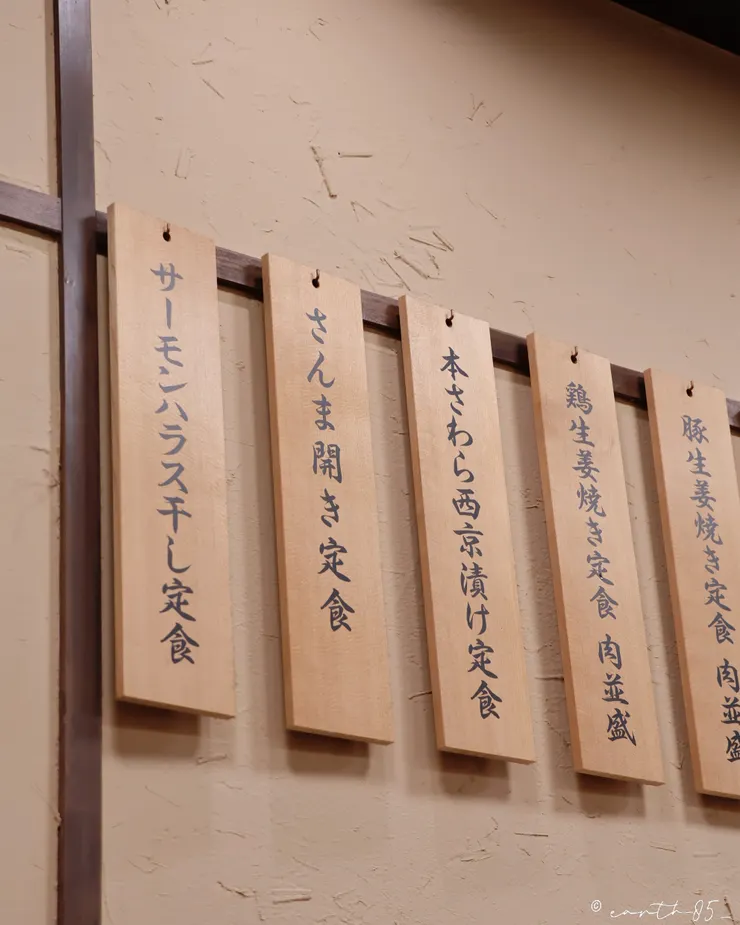 サーモンハラス干し定食
さんま開き定食
本さわら西京漬け定食
鶏生姜焼き定食 肉並盛
豚生姜焼き定食 肉並盛
© earth85_